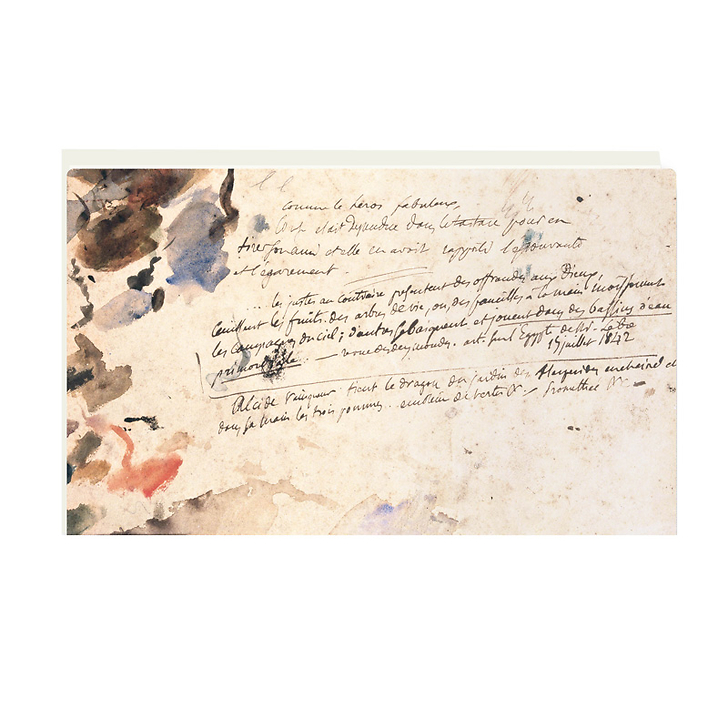 comme le héros fabuleux,
était descendue dans le tartare pour en
tirer son ami et elle en avait rapporté l'épouvante
et l'égarement.
... les justes au contraire présentent des offrandes aux Dieux,
cueillent les fruits des arbres de vie, ou, des faucilles à la main moissonnent
les campagnes du ciel; d'autres se baignent et jouent dans des bassins d'eau
primordiale. — revue des deux mondes. art. sur l'Egypte de
15 juillet 1842
Alcide vainqueur tient le dragon du jardin des Hesperides enchainé et
dans sa main les trois pommes. emblème de vertu — Promethee